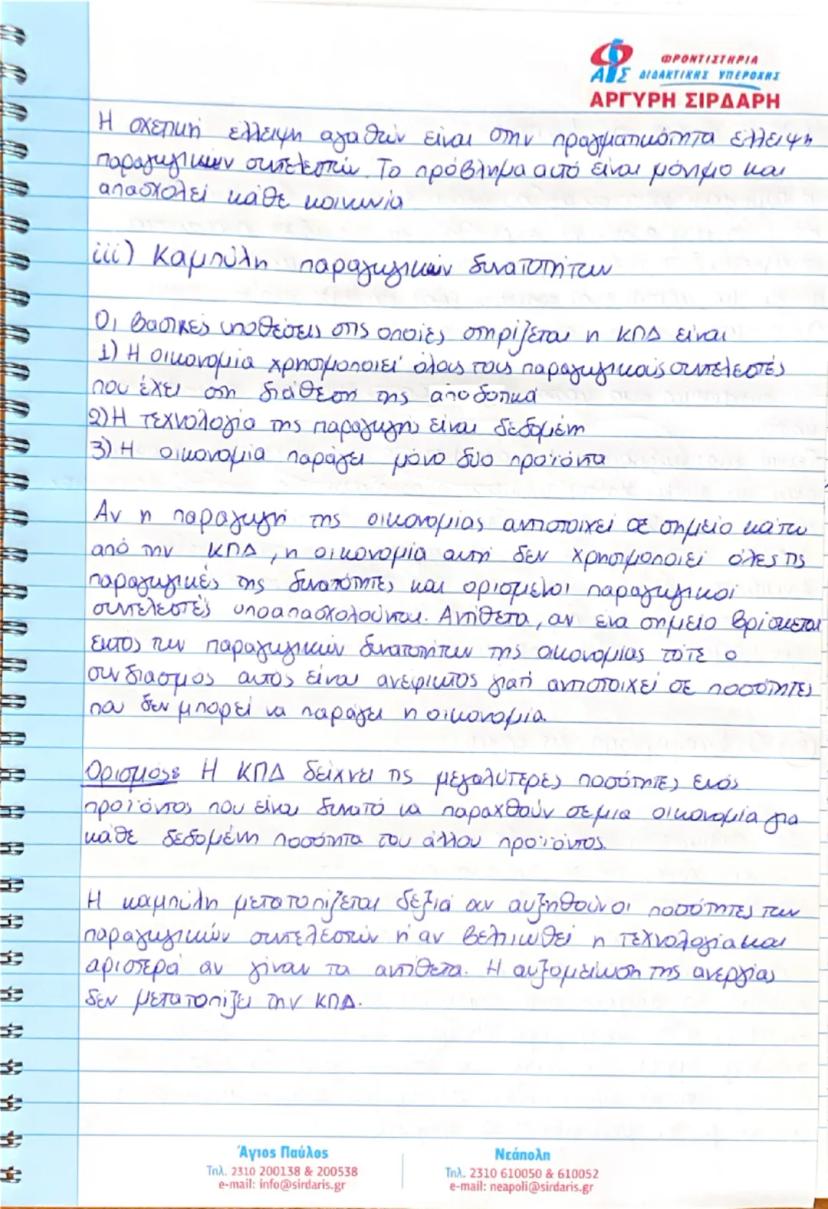 ΦΡΟΝΤΙΣΤΗΡΙΑ
ΑΣ ΔΙΔΑΚΤΙΚΗΣ ΥΠΕΡΟΧΗΣ
ΑΡΓΥΡΗ ΣΙΡΔΑΡΗ
Η σχετική έλλειψη αγαθών είναι στην πραγματικότητα έλλειψη
παραγωγικών συντελεστών. Το πρόβλημα αυτό είναι μόνιμο και
απασχολεί κάθε κοινωνία
iii) Καμπύλη παραγωγικών δυνατοτήτων
Οι βασικές υποθέσεις στις οποίες στηρίζεται η ΚΠΔ είναι
1) Η οικονομία χρησιμοποιεί όλους τους παραγωγικούς συντελεστές
που έχει στη διάθεση της αποδοτικά
2) Η τεχνολογία της παραγωγής είναι δεδομένη
3) Η οικονομία παράγει μόνο δύο προϊόντα
Αν η παραγωγή της οικονομίας αντιστοιχεί σε σημείο κάτω
από την ΚΠΔ, η οικονομία αυτή δεν χρησιμοποιεί όλες τις
παραγωγικές της δυνατότητες και ορισμένοι παραγωγικοί
συντελεστές υποαπασχολούνται. Αντίθετα, αν ένα σημείο βρίσκεται
εκτός των παραγωγικών δυνατοτήτων της οικονομίας τότε ο
συνδιασμός αυτός είναι ανέφικτος γιατί αντιστοιχεί σε ποσότητες
που δεν μπορεί να παράγει η οικονομία.
Ορισμός: Η ΚΠΔ δείχνει τις μεγαλύτερες ποσότητες ενός
προϊόντος που είναι δυνατό να παραχθούν σε μια οικονομία για
κάθε δεδομένη ποσότητα του άλλου προϊόντος.
Η καμπύλη μετατοπίζεται δεξιά αν αυξηθούν οι ποσότητες των
παραγωγικών συντελεστών ή αν βελτιωθεί η τεχνολογία και
αριστερά αν γίναν τα αντίθετα. Η αυξομείωση της ανεργίας
δεν μετατοπίζει την ΚΠΔ.
Άγιος Παύλος
Τηλ. 2310 200138 & 200538
e-mail: info@sirdaris.gr
Νεάπολη
Τηλ. 2310 610050 & 610052
e-mail: neapoli@sirdaris.gr